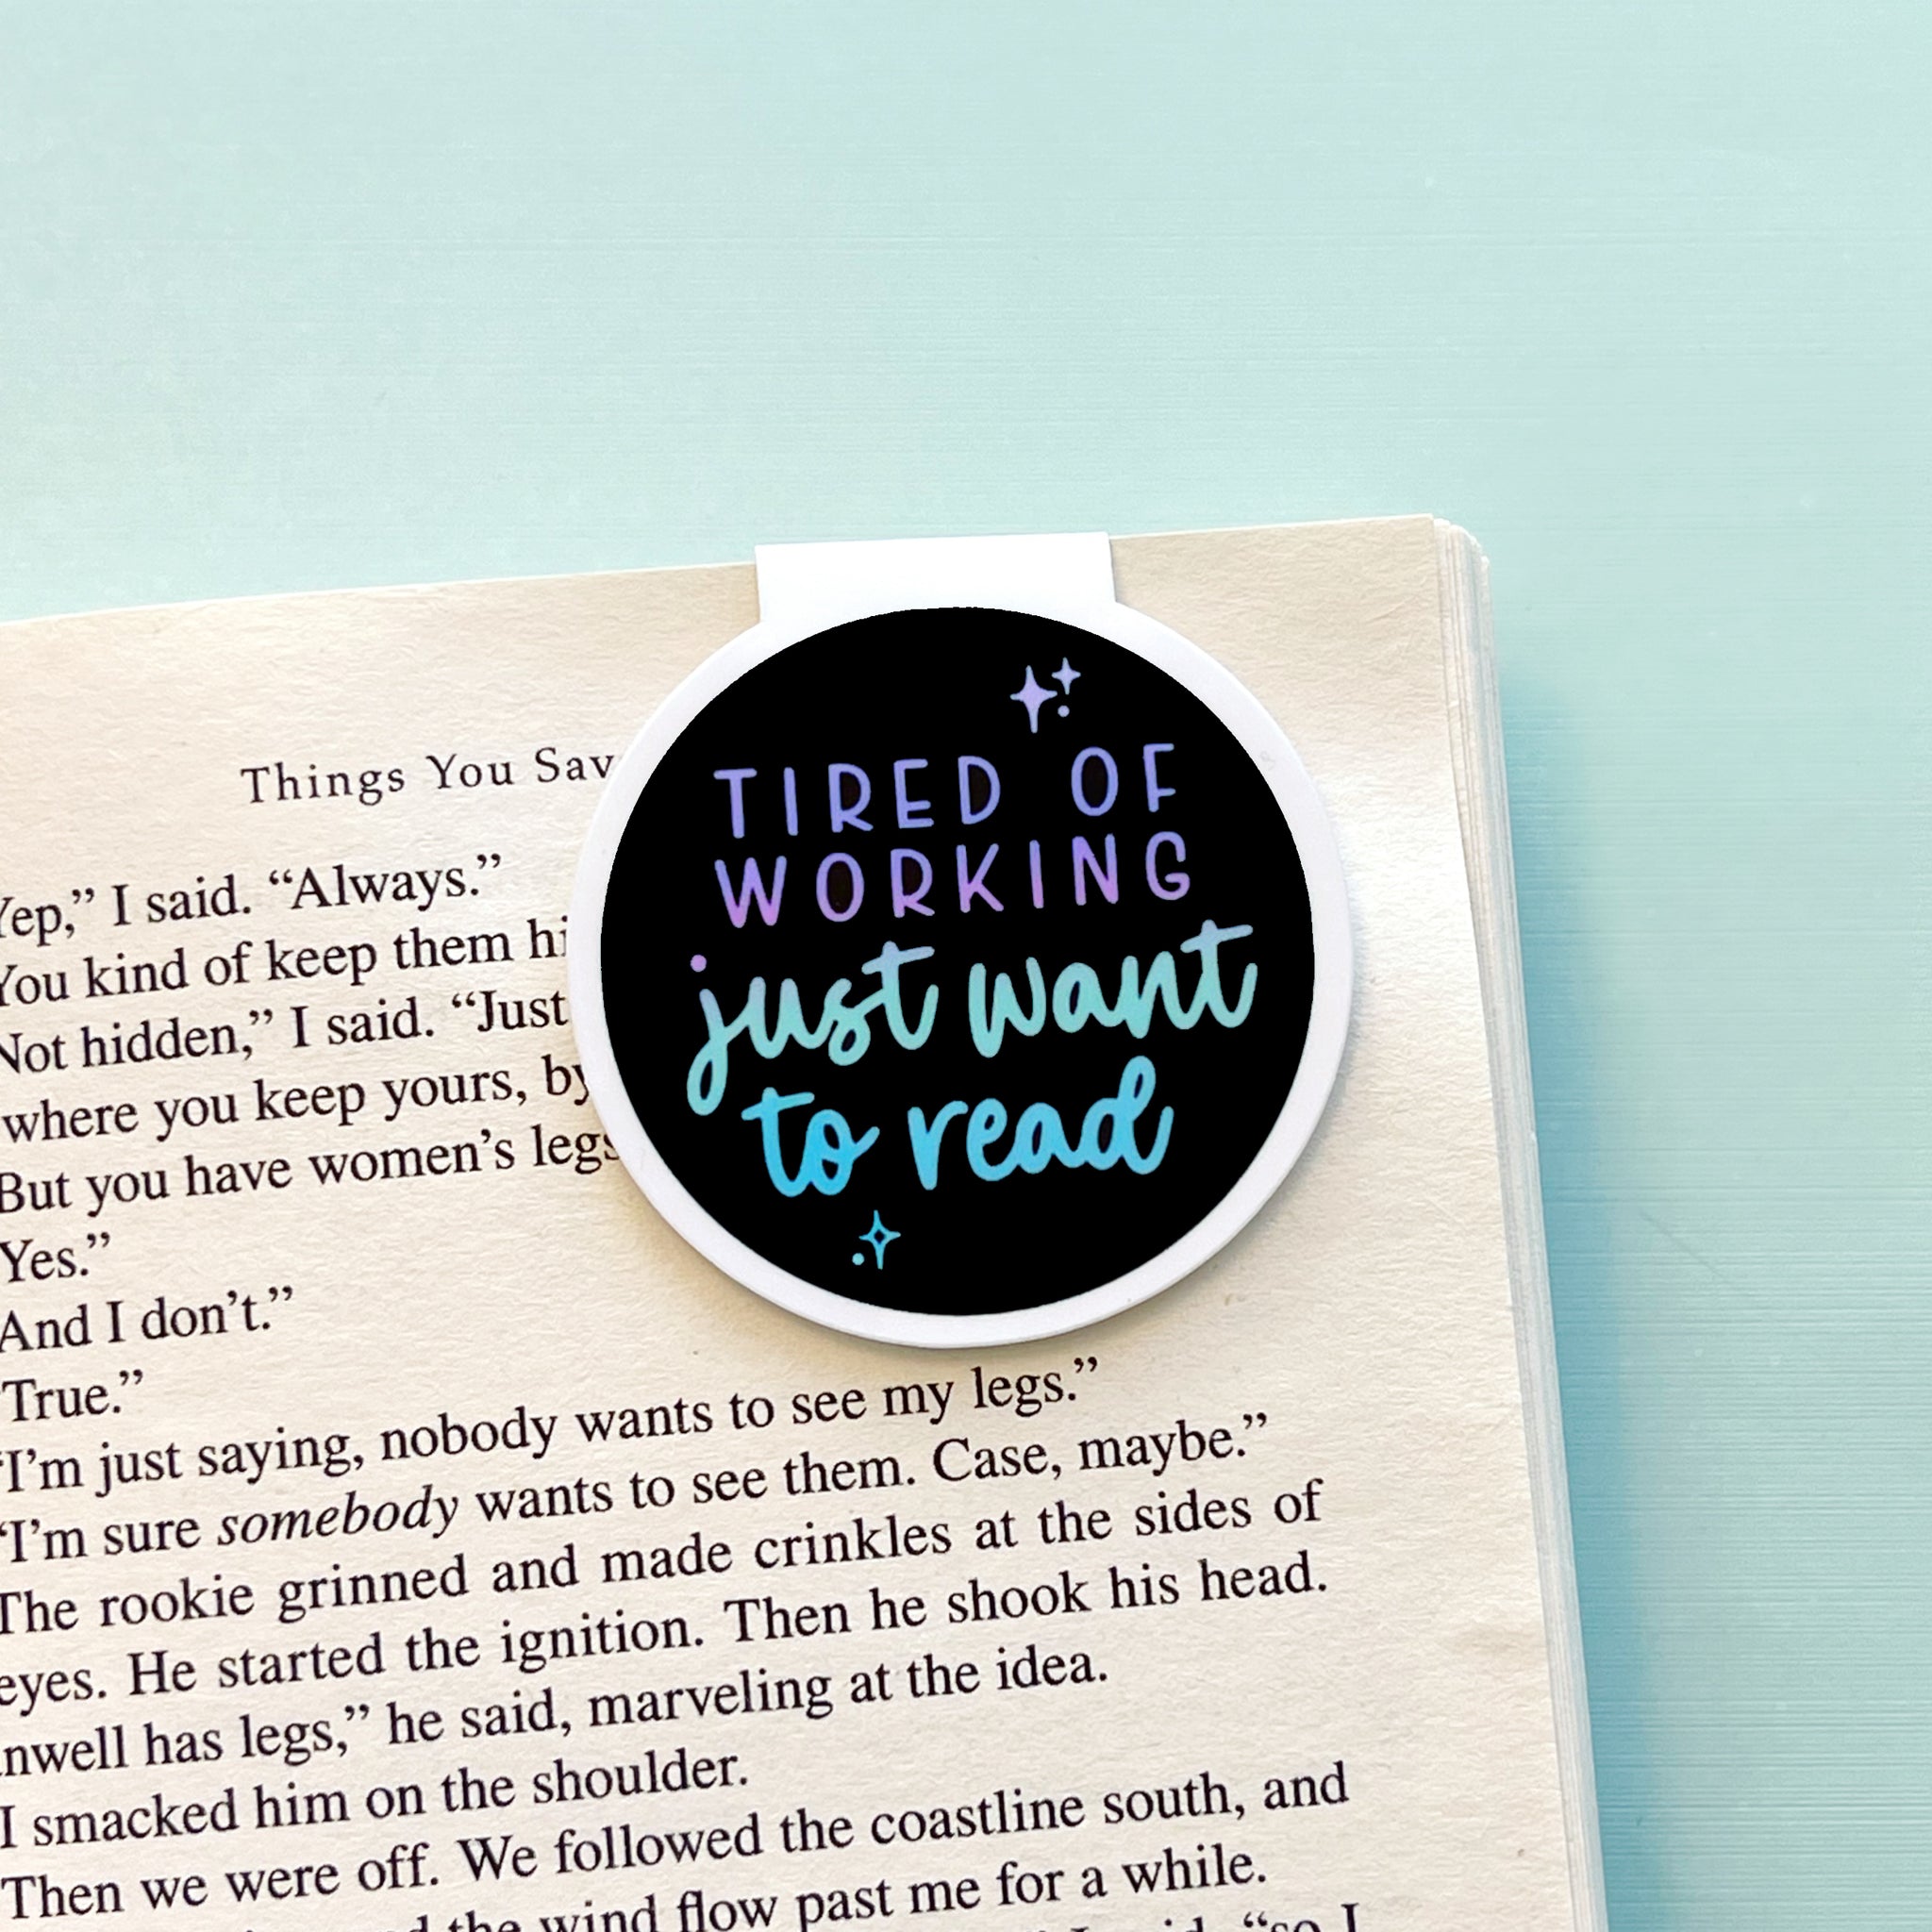 Things You Sav
TIRED OF
WORKING
just want
to read
Yep,” I said. “Always.”
You kind of keep them hi
Not hidden,” I said. “Just
where you keep yours, by
But you have women’s legs
Yes.”
And I don’t.”
True.”
“I’m just saying, nobody wants to see my legs.”
“I’m sure somebody wants to see them. Case, maybe.”
The rookie grinned and made crinkles at the sides of
eyes. He started the ignition. Then he shook his head.
nwell has legs,” he said, marveling at the idea.
I smacked him on the shoulder.
Then we were off. We followed the coastline south, and
the wind flow past me for a while.
“so I